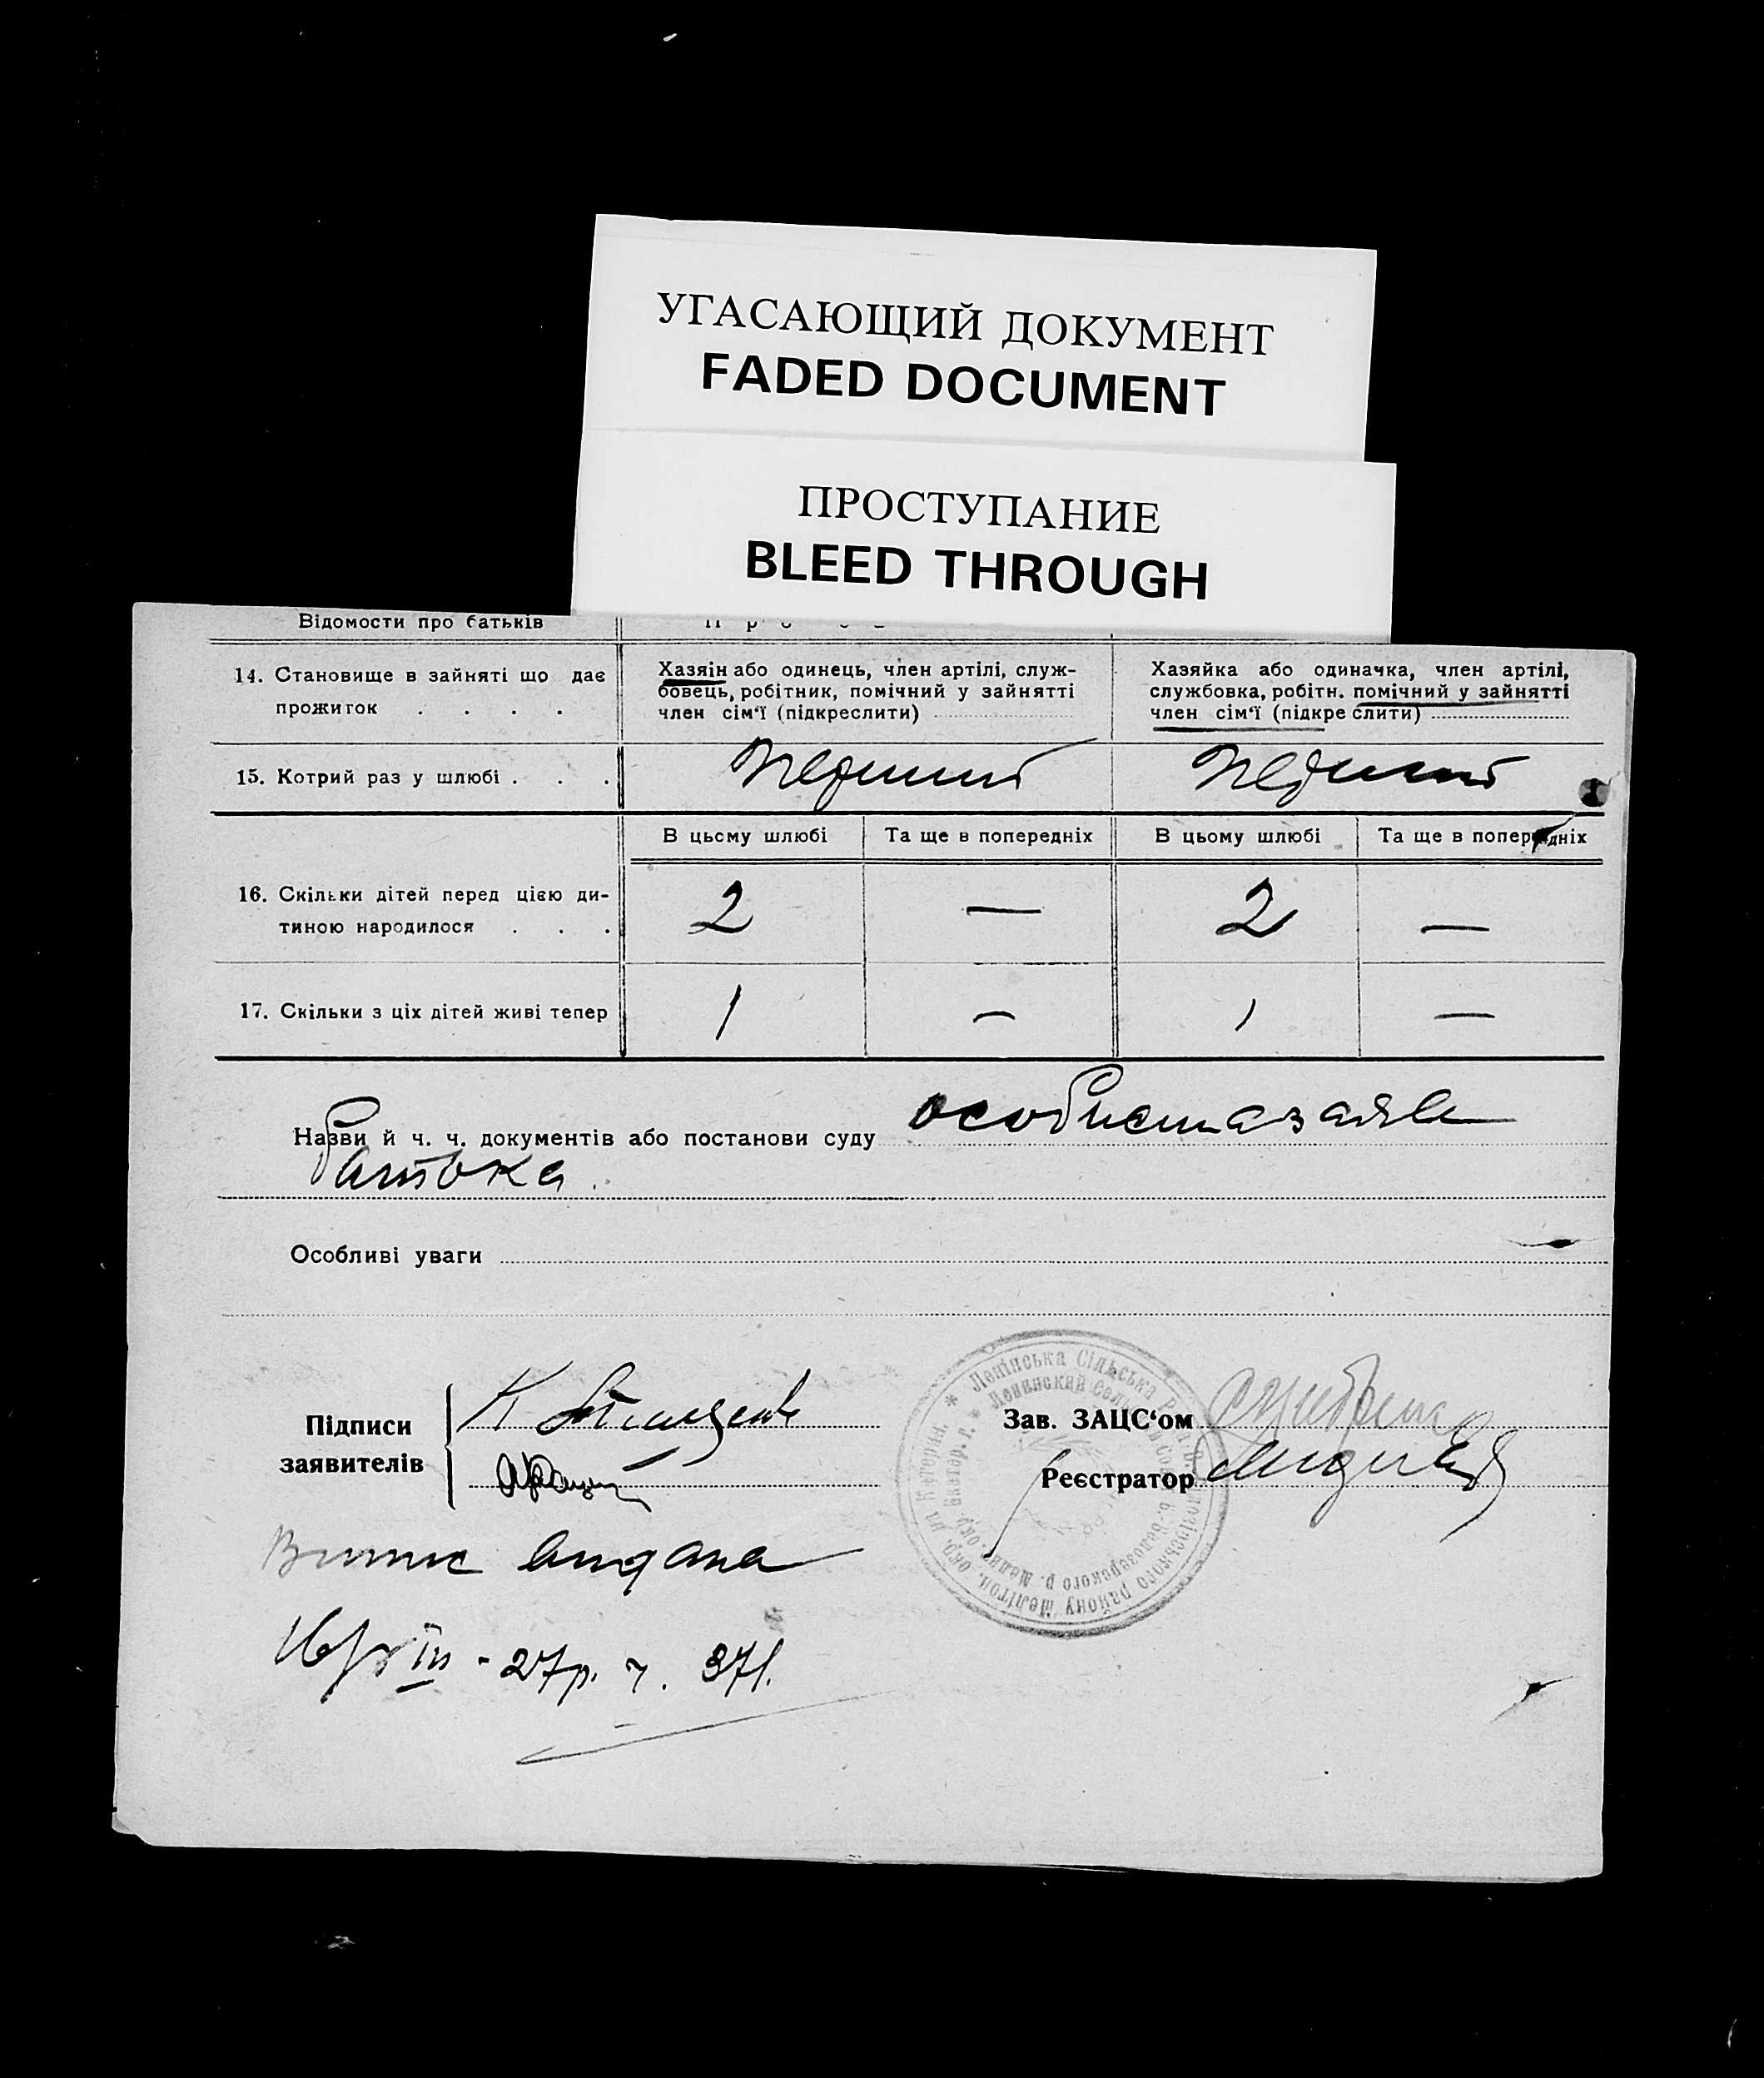 УГАСАЮЩИЙ ДОКУМЕНТ
FADED DOCUMENT
ПРОСТУПАНИЕ
BLEED THROUGH
Відомости про батьків
14. Становище в зайняті що дає
прожиток . . . .
Хазяін або одинець, член артілі, служ-
бовець, робітник, помічний у зайнятті
член сім‘ї (підкреслити)
Хазяйка або одиначка, член артілі,
службовка, робітн. помічний у зайнятті
член сім‘ї (підкреслити)
15. Котрий раз у шлюбі . . .
Первший
Первший
В цьсму шлюбі
Та ще в попередніх
В цьому шлюбі
Та ще в попередніх
16. Скільки дітей перед цією ди-
тиною народилося . . .
2 — 2 —
17. Скільки з ціх дітей живі тепер
1 — 1 —
Назви й ч. ч. документів або постанови суду особиста заява
батька.
Особливі уваги
Підписи
заявителів
Зав. ЗАЦС‘ом
Реєстратор
Ленінська Сільська
Випис видана
16/VIII - 27р. ч. 371.